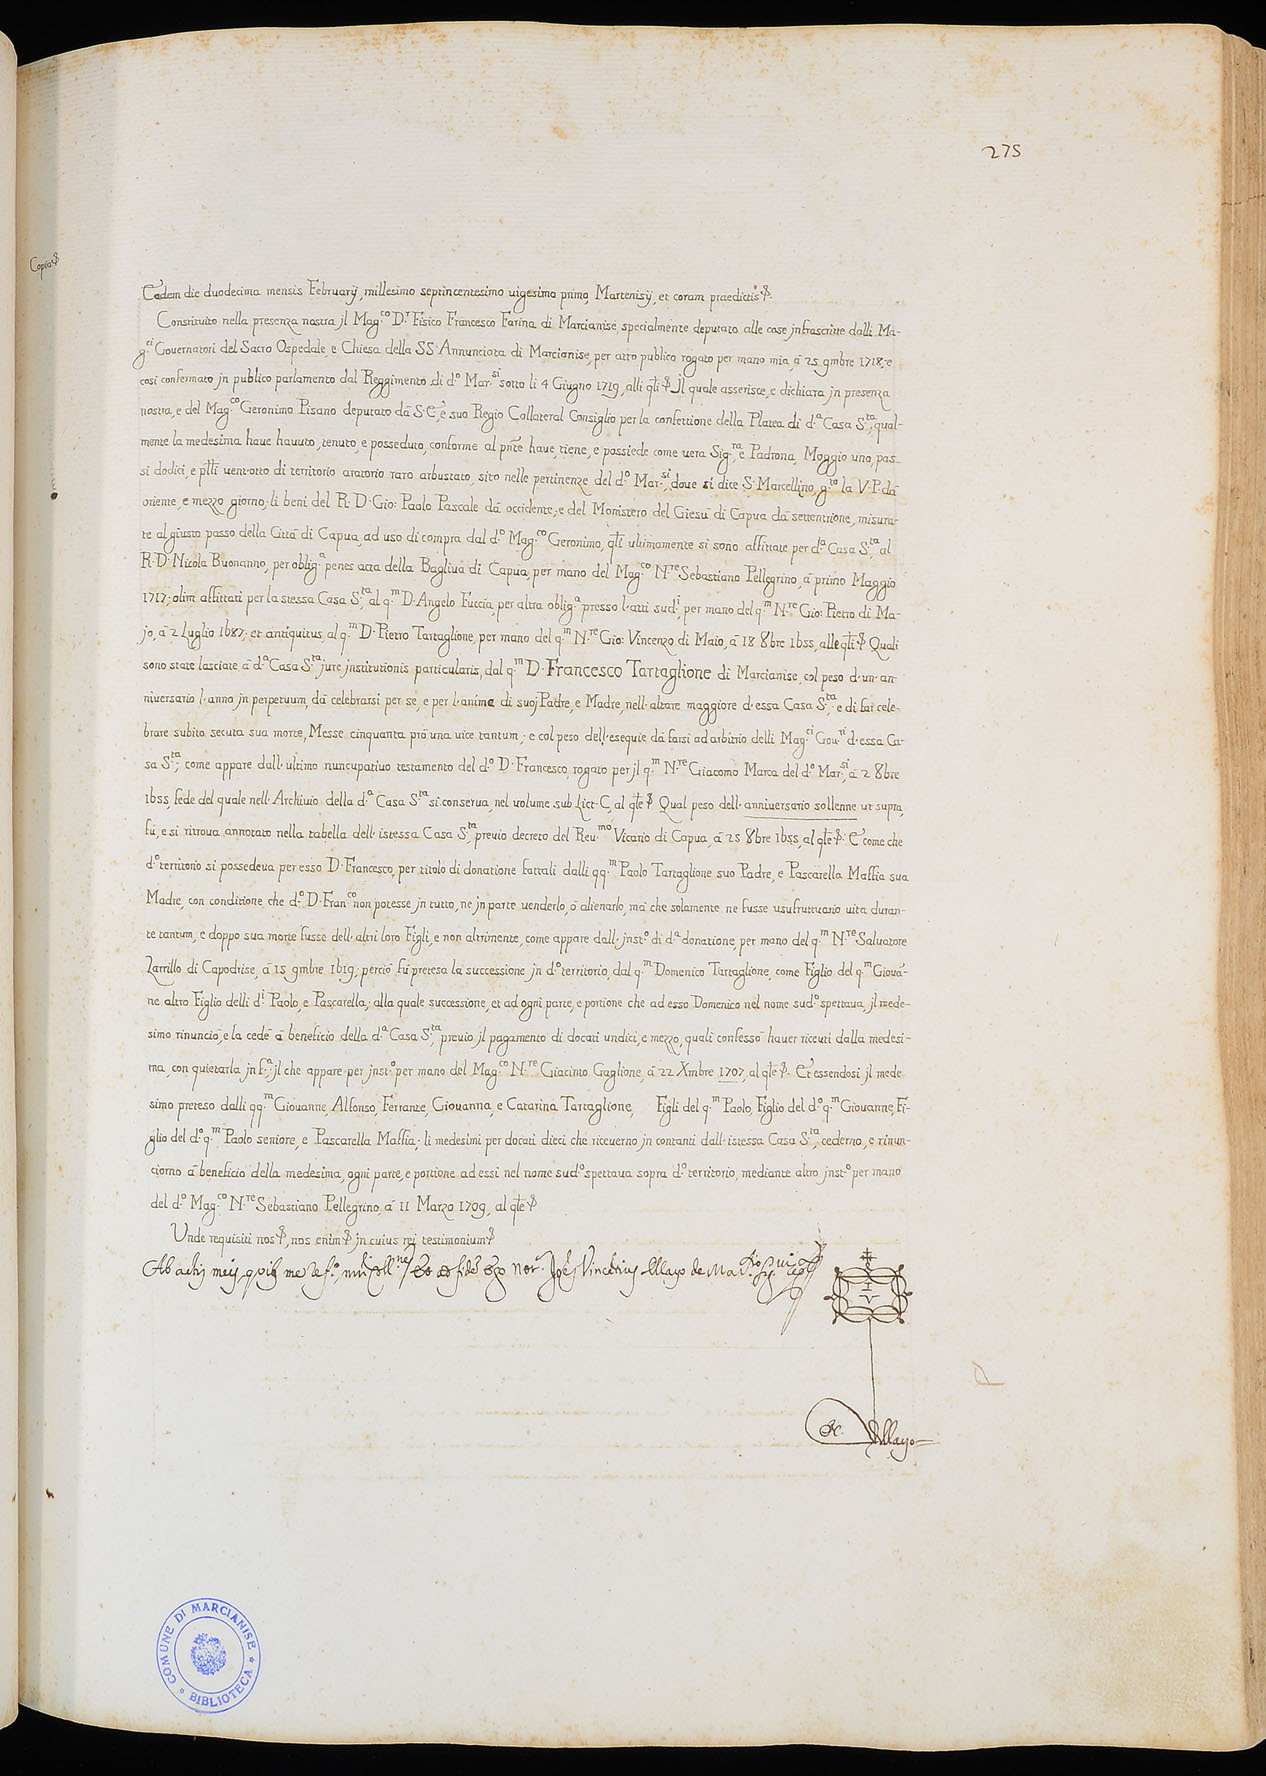 275
Copia
Eadem die duodecima mensis Februarij, millesimo septincentesimo uigesimo primo, Martenisij, et coram praedictis
Constituito nella presenza nostra jl Mag.co D.r Fisico Francesco Farina di Marcianise, specialmente deputato alle cose jnfrascritte dalli Ma-
g.ci Governatori del Sacro Ospedale, e Chiesa della SS. Annunciata di Marcianise, per atto publico rogato per mano mia, à 25 9mbre 1718; e
cosi confermato jn publico parlamento dal Reggimento di d.o Mar.si sotto li 4 Giugno 1719, alli qli Jl quale asserisce, e dichiara jn presenza
nostra, e del Mag.co Geronimo Pisano deputato dà S. E., e suo Regio Collateral Consiglio per la confettione della Platea di d.a Casa S.ta, qual-
mente la medesima haue hauuto, tenuto, e posseduto, conforme al pnte haue, tiene, e possiede come uera Sig.ra, e Padrona, Moggio uno, pas-
si dodici, e plli uent'otto di territorio aratorio raro arbustato, sito nelle pertinenze del d.o Mar.si, doue si dice S. Marcellino, g.to la V. P. dà
oriente, e mezzo giorno; li beni del R. D. Gio: Paolo Pascale dà occidente; e del Monistero del Giesù di Capua dà settentrione, misura-
te al giusto passo della Città di Capua, ad uso di compra dal d.o Mag.co Geronimo, qli ultimamente si sono affittate per d.a Casa S.ta al
R. D. Nicola Buonanno, per oblig.a penes acta della Bagliua di Capua, per mano del Mag.co N.re Sebastiano Pellegrino, à primo Maggio
1717; olim affittati per la stessa Casa S.ta al q.m D. Angelo Fuccia, per altra oblig.a presso l'atti sud.i, per mano del q.m N.re Gio: Pietro di Ma-
jo, à 2 Luglio 1687; et antiquitus, al q.m D. Pietro Tartaglione, per mano del q.m N.re Gio: Vincenzo di Maio, à 18 8bre 1655, alle qli Quali
sono state lasciate à d.a Casa S.ta jure jnstitutionis particularis, dal q.m D. Francesco Tartaglione di Marcianise, col peso d'un an-
niuersario l'anno jn perpetuum, dà celebrarsi per se, e per l'anime di suoj Padre, e Madre, nell'altare maggiore d'essa Casa S.ta, e di far cele-
brare subito secuta sua morte, Messe cinquanta prò una uice tantum; e col peso dell'esequie dà farsi ad arbitrio delli Mag.ci Gou.ri d'essa Ca-
sa S.ta; come appare dall'ultimo nuncupatiuo testamento del d.o D. Francesco, rogato per jl q.m N.re Giacomo Marca del d.o Mar.si, à 2 8bre
1655, fede del quale nell'Archiuio della d.a Casa S.ta si conserua, nel volume sub Lict. C, al qle Qual peso dell'anniuersario sollenne ut supra,
fù, e si ritroua annotato nella tabella dell'istessa Casa S.ta, preuio decreto del Reu.mo Vicario di Capua, à 25 8bre 1655, al qle E come che
d.o territorio si possedeua per esso D. Francesco, per titolo di donatione fattali dalli qq.m Paolo Tartaglione suo Padre, e Pascarella Massia sua
Madre, con conditione che d.o D. Fran.co non potesse jn tutto, ne jn parte uenderlo, ò alienarlo, mà che solamente ne fusse usufruttuario uita duran-
te tantum, e doppo sua morte fusse dell'altri loro Figli, e non altrimente, come appare dall'jnst.o di d.a donatione, per mano del q.m N.re Saluatore
Zarrillo di Capodrise, à 15 9mbre 1619; perciò fù pretesa la successione jn d.o territorio, dal q.m Domenico Tartaglione, come Figlio del q.m Giouà-
ne altro Figlio delli d.i Paolo, e Pascarella; alla quale successione, et ad ogni parte, e portione che ad esso Domenico nel nome sud.o spettaua, jl mede-
simo rinunciò, e la cedè à beneficio della d.a Casa S.ta, preuio jl pagamento di docati undici, e mezzo, quali confessò hauer riceuti dalla medesi-
ma, con quietarla jn f.a; jl che appare per jnst.o per mano del Mag.co N.re Giacinto Gaglione, à 22 Xmbre 1707, al qle Et essendosi jl mede
simo preteso dalli qq.m Giouanne, Alfonso, Ferrante, Giouanna, e Catarina Tartaglione, Figli del q.m Paolo, Figlio del d.o q.m Giouanne, Fi-
glio del d.o q.m Paolo seniore, e Pascarella Massia; li medesimi per docati dieci che riceuerno jn contanti dall'istessa Casa S.ta, cederno, e rinun-
ciorno à beneficio della medesima, ogni parte, e portione ad essi nel nome sud.o spettaua sopra d.o territorio, mediante altro jnst.o per mano
del d.o Mag.co N.re Sebastiano Pellegrino, à 11 Marzo 1709, al qle
Unde requisiti nos, nos enim jn cuius rei testimonium
Ab actis meis, quib me ref.o, fidè ego Not.r Joses Vincentius Mayo de
Mayo
COMUNE DI MARCIANISE
BIBLIOTECA